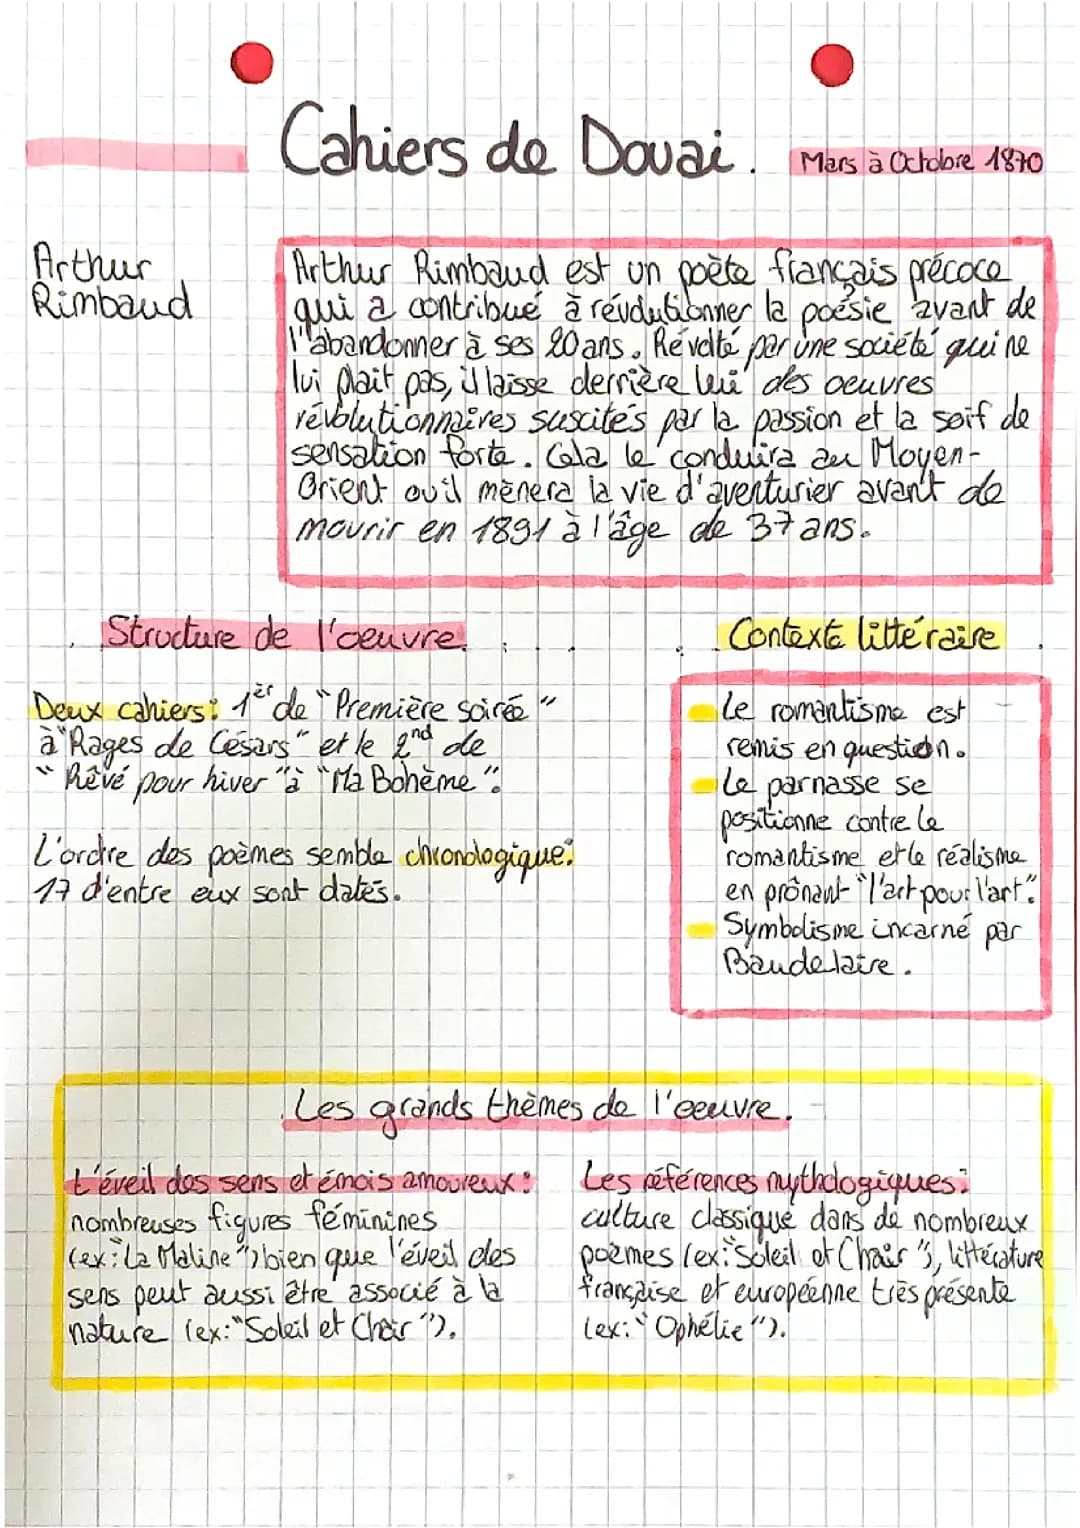 Cahiers de Douai.
Mars à Octobre 1870
Arthur
Rimbaud
Arthur Rimbaud est un poète français précoce
qui a contribué à révolutionner la poésie avant de
l'abandonner à ses 20 ans. Révolté par une société qui ne
lui plait pas, il laisse derrière lui des oeuvres
révolutionnaires suscités par la passion et la soif de
sensation forte. Cela le conduira au Moyen-
Orient ou il mènera la vie d'aventurier avant de
mourir en 1891 à l'âge de 37 ans.
Structure de l'oeuvre.
Deux cahiers: 1er de "Première soirée"
à "Rages de Césars" et le 2nd de
"Rêvé pour hiver" à "Ma Bohème".
L'ordre des poèmes semble chronologique:
17 d'entre eux sont datés.
Contexte littéraire
Le romantisme est
remis en question.
Le parnasse se
positionne contre le
romantisme et le réalisme
en prônant "l'art pour l'art".
Symbolisme incarné par
Baudelaire.
Les grands thèmes de l'oeuvre.
L'éveil des sens et émois amoureux:
nombreuses figures féminines
(ex: "La Maline") bien que l'éveil des
sens peut aussi être associé à la
nature (ex: "Soleil et Chair").
Les références mythologiques:
culture classique dans de nombreux
poèmes (ex: "Soleil et Chair"), littérature
française et européenne très présente
(ex: "Ophélie").